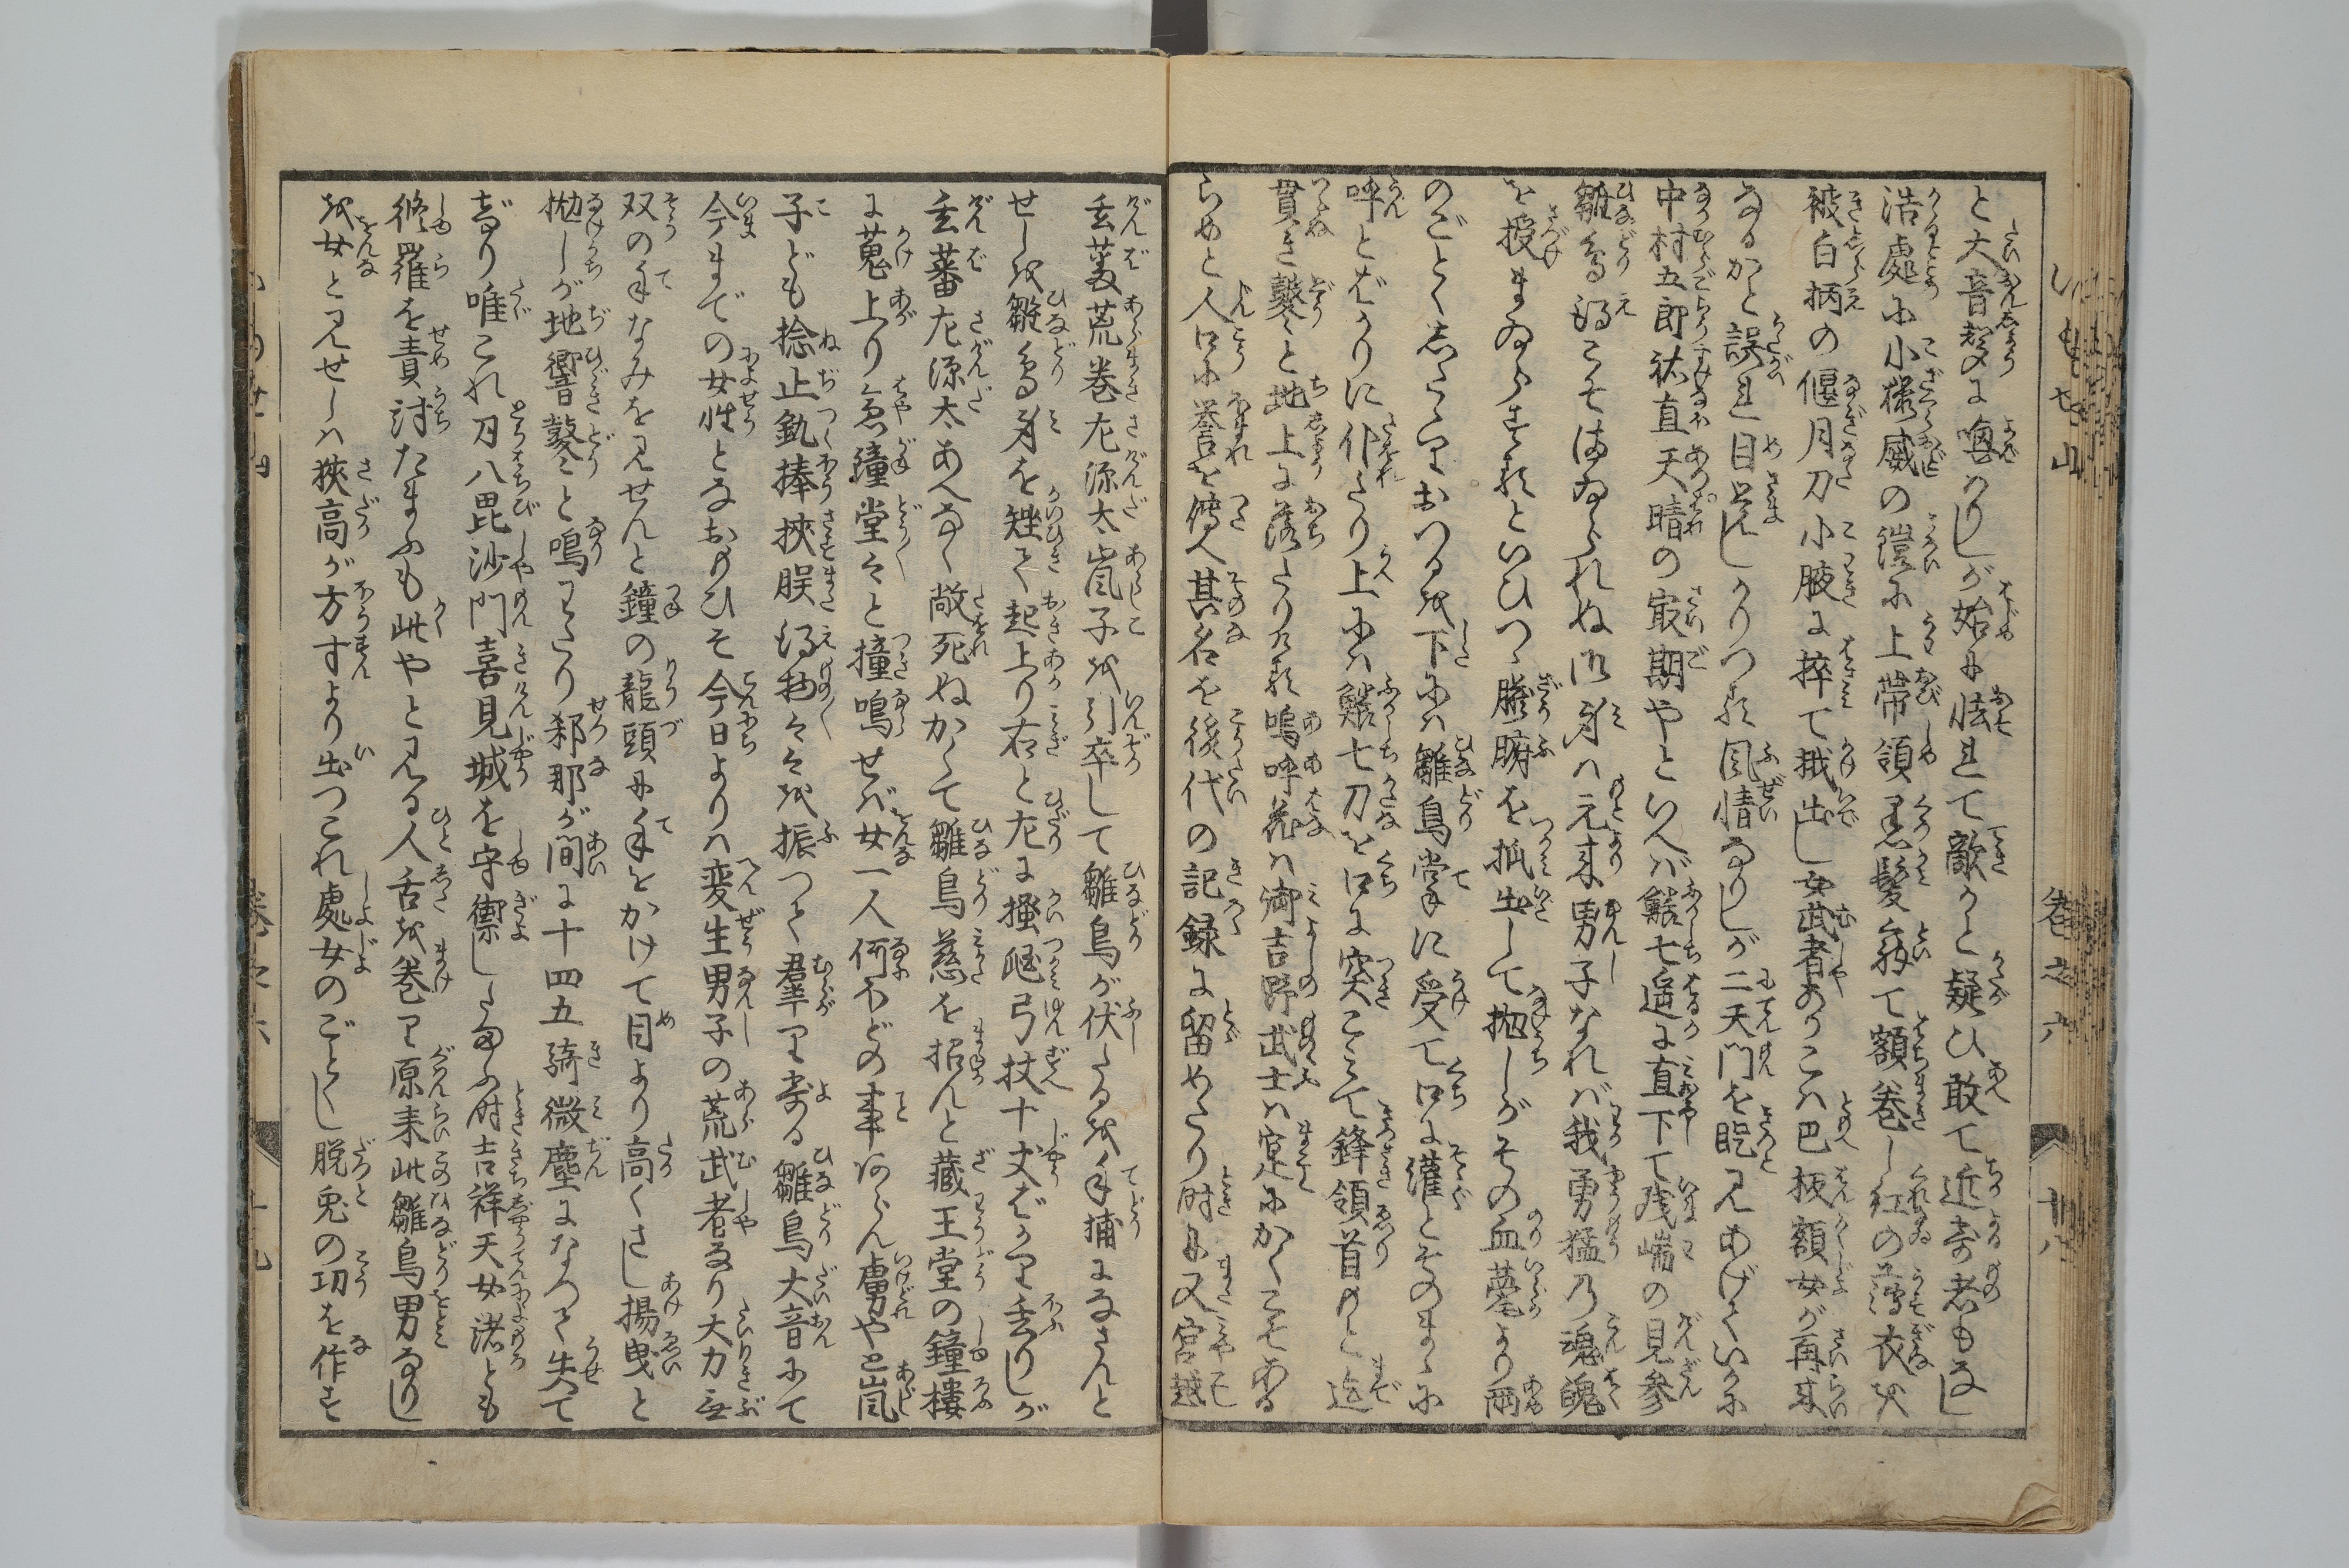 と大音声に喚はりしが始は怯まて敵かと疑ひ敢て近寄者もなし
浩処に小桜威の鎧に上帯領黒髪解て額巻し紅の薄衣を
被白柄の偃月刀小腋に搾て掀出し女武者ありこハ巴板額女が再来
なるかと誤まれ目覚しかりつる風情なりしが二天門を屹見あげていかに
中村五郎祐直天晴の最期やといへば鯰七遥に直下て残喘の見参
雛鳥得こそまゐられぬ御身ハ元来男子なれば我勇猛の魂魄
を授まゐらするといひつゝ臓腑を抓出して抛しがその血甍より雨
のごとくしたゝりおつるを下にハ雛鳥掌に受て口に灌とそのまゝに
呼とばかりに仆たり上にハ鯰七刀を口に突こみて鋒領首のと迄
貫き鼕々と地上に落たりける嗚呼花ハ御吉野武士ハ定にかくこそある
らめと人口に誉を傳へ其名を後代の記録に留めたり時に又宮越
玄蕃荒巻左源太嵐子を引卒して雛鳥が伏たるを手捕になさんと
せしを雛鳥身を矬て起上り右と左に掻𢬵弓杖十丈ばかり丟りしが
玄蕃左源太あへなく敲死ぬかくて雛鳥慈を招んと蔵王堂の鐘楼
に蒐上り急鐘堂々と撞鳴せば女一人何ほどの事あらん虜やと嵐
子ども捻止釚捧挾脵得物々々を振つて群り寄る雛鳥大音にて
今までの女性となおもひそ今日よりハ変生男子の荒武者なり大力無
双の手なみを見せんと鐘の龍頭に手をかけて目より高くさし揚曳と
抛しが地響鼕々と鳴わたり刹那が間に十四五騎微塵になつて失て
けり唯これ刀八毘沙門喜見城を守禦したまふ時吉祥天女諸とも
修羅を責討たまふも此やと見る人舌を巻り原来此雛鳥男なりし
を女と見せしハ狭高が方寸より出つこれ處女のごとくし脱兎の功を作す
いもせ山
巻之六
廿八